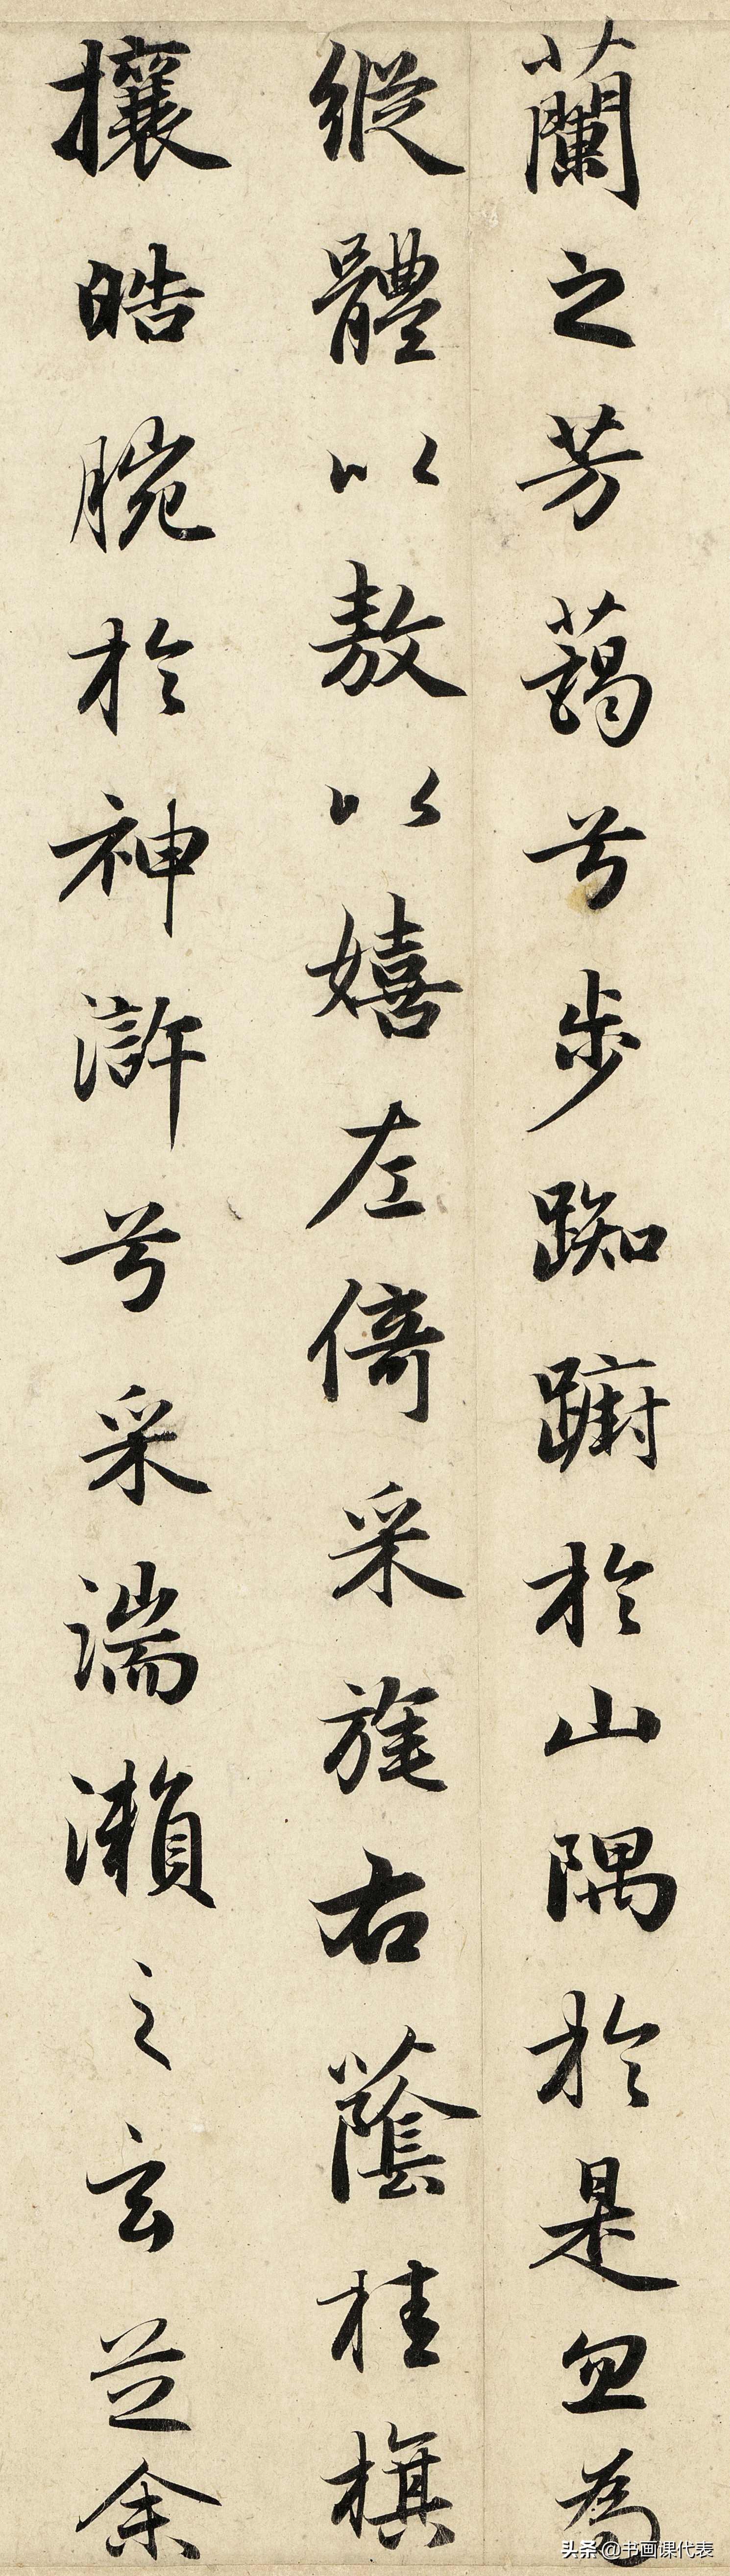 蘭之芳藹兮步踟蹰於山隅於是忽焉
縱體以敖以嬉左倚采旄右蔭桂旗
攘皓腕於神滸兮采湍瀨之玄芝余
头条@书画课代表